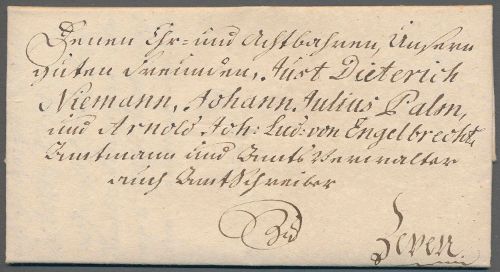 Denen Ehr- und Achtbahren, Unsern
guten Freunden, Just Dieterich
Niemann, Johann Julius Palm,
und Arnold Joh: Lud: von Engelbrecht,
Amtmann und Amts Verwalter
auch Amtschreiber
Zu
Zeven.